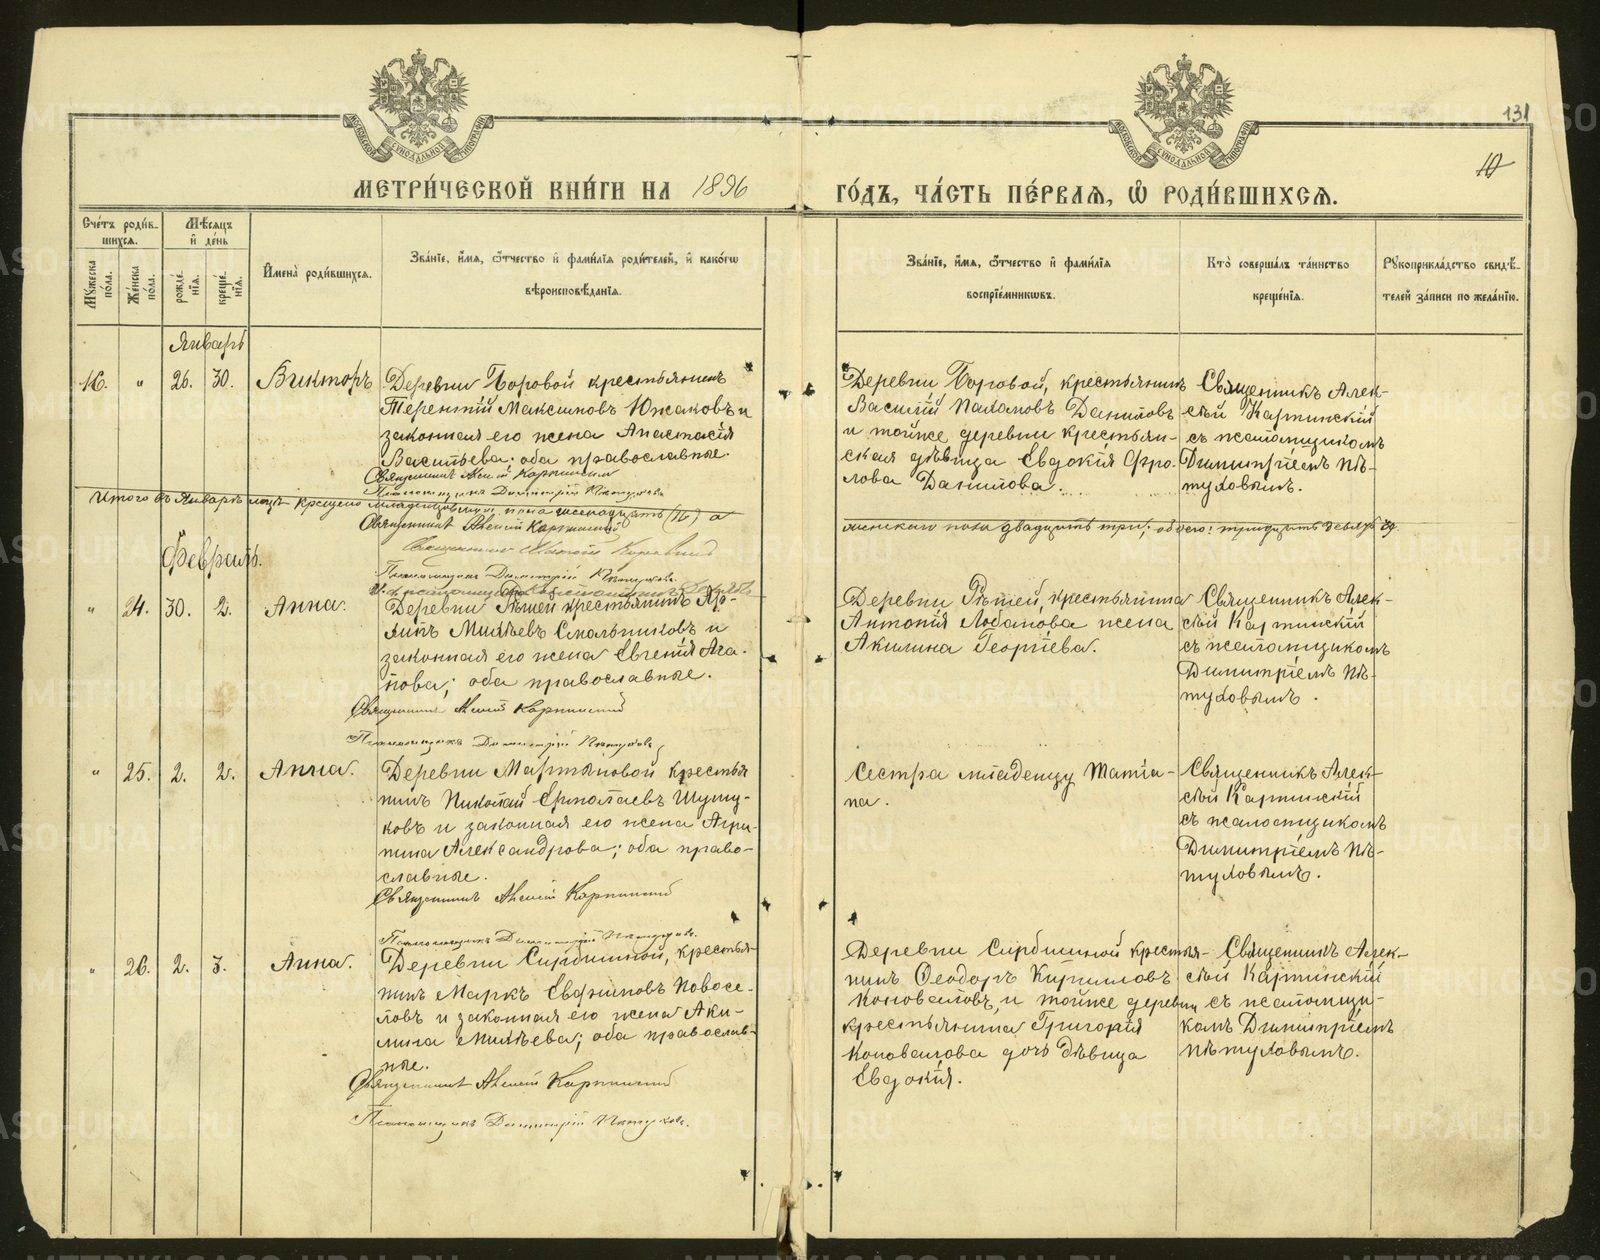 131
10
МЕТРИ́ЧЕСКОЙ КНИ́ГИ НА 1896 ГО́ДЪ, ЧА́СТЬ ПЕ́РВАѦ, Ѽ РОДИ́ВШИХСѦ.
Сче́тъ роди́в-
шихсѧ.
Мꙋ́жеска по́ла.
Же́нска по́ла.
Мѣ́сѧцъ
и҆ де́нь
рожде́нїѧ.
креще́нїѧ.
И҆мена̀ роди́вшихсѧ.
Зва́нїе, и҆́мѧ, ѻ҆́тчество и҆ фами́лїѧ роди́телей, и҆ како́гѡ
вѣроисповѣ́данїѧ.
Зва́нїе, и҆́мѧ, ѻ҆́тчество и҆ фами́лїѧ
воспрїе́мникѡвъ.
Кто̀ соверша́лъ та́инство
креще́нїѧ.
Рꙋкоприкла́дство свидѣ́-
телей за́писи по жела́нїю.
Январь
16. " 26. 30. Викторъ
Деревни Боровой крестьянинъ
Терентій Максимовъ Южаковъ и
законная его жена Анастасія
Васильева; оба православные.
Священникъ Алексій Карпинскій
Псаломщикъ Димитрій Пѣтуховъ
Деревни Боровой, крестьянинъ
Василій Пахомовъ Даниловъ
и тойже деревни крестьян-
ская дѣвица Евдокія Фро-
лова Данилова.
Священникъ Алек-
сѣй Карпинскій
съ псаломщикомъ
Димитріемъ Пѣ-
туховымъ.
Итого въ Январѣ мѣс. крещено младенцовъ муж. пола шестнадцать (16) а
женскаго пола двадцать три; обоего: тридцать девять 39.
Священникъ Алексій Карпинскій
Псаломщикъ Димитрій Пѣтуховъ.
Февраль.
" 24. 30. 2. Анна.
Деревни Рѣшей, крестьянинъ
Милѣевъ Смольниковъ и
законная его жена Евгенія Ага-
пова; оба православные.
Священникъ Алексій Карпинскій
Псаломщикъ Димитрій Пѣтуховъ
Деревни Рѣшей, крестьянина
Антонія Лобанова жена
Акилина Георгіева.
Священникъ Алек-
сѣй Карпинскій
съ псаломщикомъ
Димитріемъ Пѣ-
туховымъ.
" 25. 2. 2. Анна.
Деревни Мартьяновой крестья
нинъ Николай Ермолаевъ Шуту-
ковъ и законная его жена Агри-
пина Александрова; оба право-
славные.
Священникъ Алексій Карпинскій
Псаломщикъ Димитрій Пѣтуховъ.
Сестра младенцу Татіа-
на.
Священникъ Алек-
сѣй Карпинскій
съ псаломщикомъ
Димитріемъ Пѣ-
туховымъ.
" 26. 2. 3. Анна.
Деревни Сирбишной, крестья-
нинъ Маркъ Евфимовъ Новосе-
ловъ и законная его жена Аки-
лина Милѣева; оба православ-
ные.
Священникъ Алексій Карпинскій
Псаломщикъ Димитрій Пѣтуховъ.
Деревни Сирбишной крестья-
нинъ Ѳеодоръ Кирилловъ
Коноваловъ, и тойже деревни
крестьянина Григорія
Коновалова дочь дѣвица
Евдокія.
Священникъ Алек-
сѣй Карпинскій
съ псаломщи-
комъ Димитріемъ
Пѣтуховымъ.